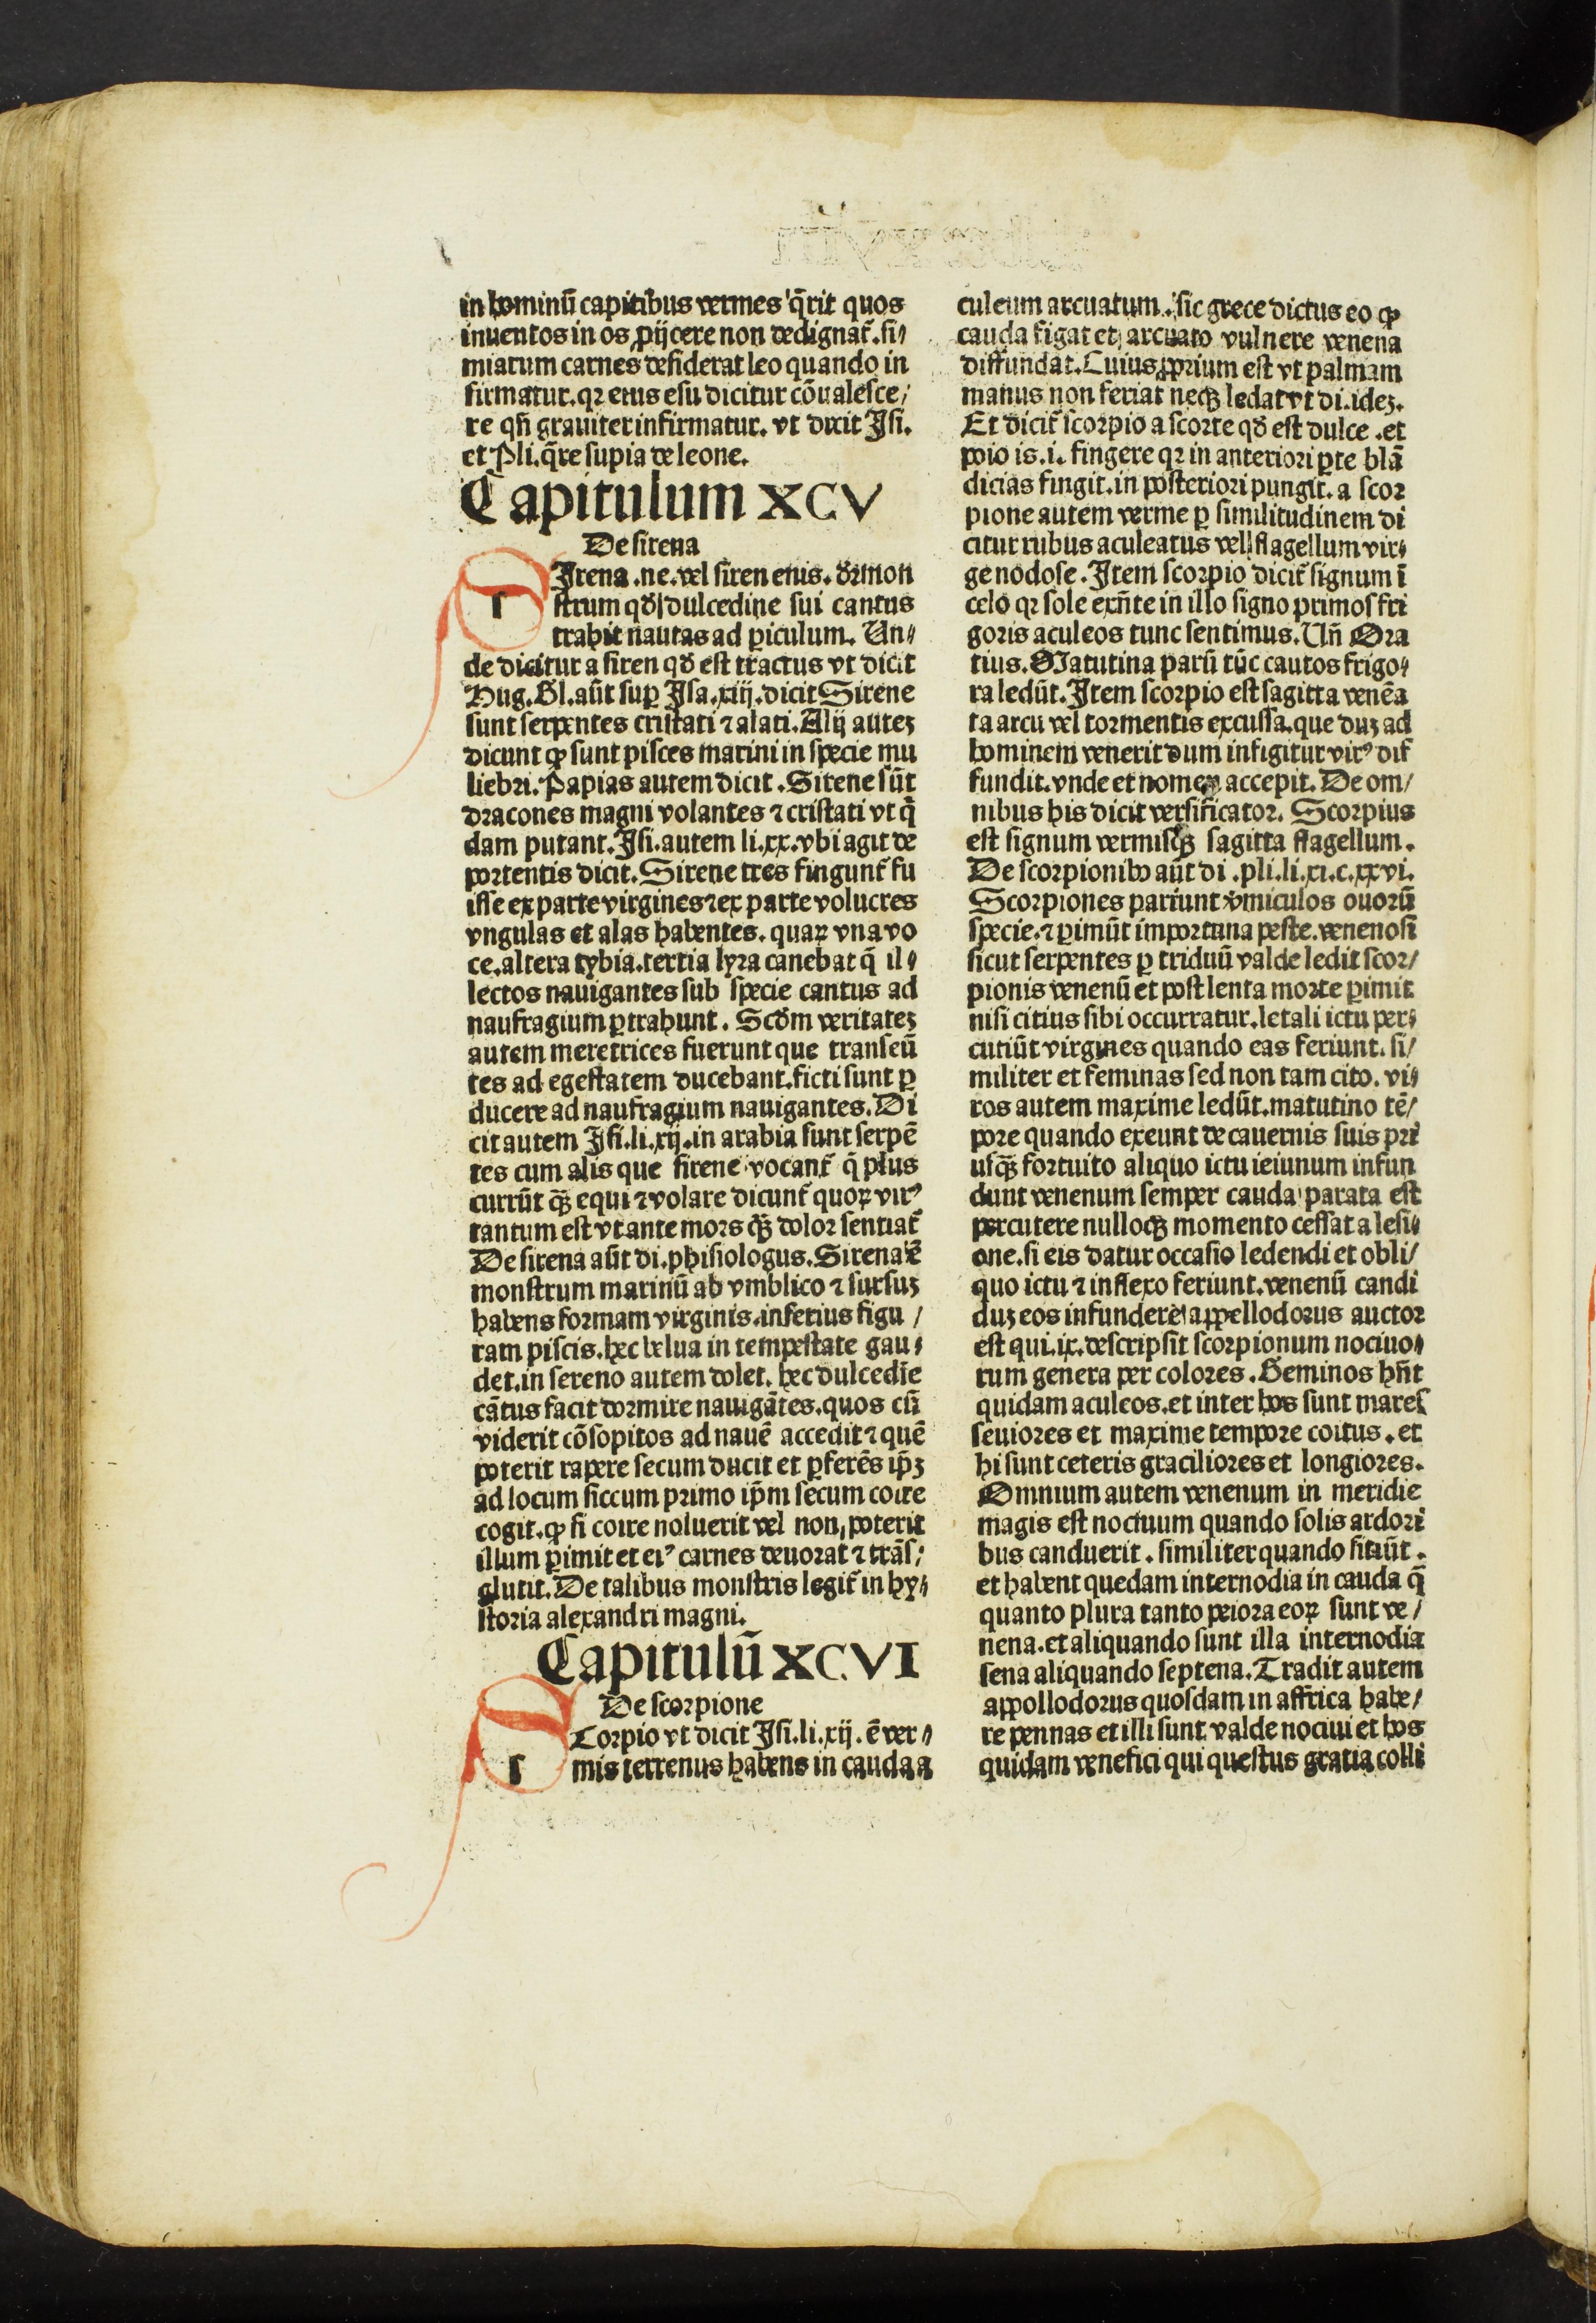 in hominū capitibus vermes q̄rit quos
inuentos in os ꝓijcere non dedignat̄. si⸗
miarum carnes desiderat leo quando in
firmatur. qꝛ enis esu dicitur cōualesce⸗
re qn̄ grauiter infirmatur. vt dixit Isi.
et Pli. q̄re supia de leone.
Capitulum XCV
De sirena
SIrena .ne. vel siren enis. dꝛ mon
strum qd̄ dulcedine sui cantus
trahit nautas ad ꝑiculum. Un⸗
de dicitur a siren qd̄ est tractus vt dicit
Hug. Gl. aūt suꝑ Isa. xiij. dicit Sirene
sunt serpentes cristati ⁊ alati. Alij auteꝫ
dicunt ꝙ sunt pisces marini in specie mu
liebri. Papias autem dicit. Sirene sūt
dracones magni volantes ⁊ cristati vt q̄
dam putant. Isi. autem li. xx. vbi agit de
portentis dicit. Sirene tres fingunt̄ fu
isse ex parte virgines ⁊ ex parte volucres
vngulas et alas habentes. quaꝝ vna vo
ce. altera tybia. tertia lyra canebat q̄ il⸗
lectos nauigantes sub specie cantus ad
naufragium ꝑtrahunt. Scd̄m veritateꝫ
autem meretrices fuerunt que transeū
tes ad egestatem ducebant. ficti sunt ꝑ
ducere ad naufragium nauigantes. Di
cit autem Isi. li. xij. in arabia sunt serpē
tes cum alis que sirene vocant̄ q̄ plus
currūt qꝫ̄ equi ⁊ volare dicunt̄ quoꝝ virꝰ
tantum est vt ante mors qꝫ̄ dolor sentiat̄
De sirena aūt di. phisiologus. Sirena ē
monstrum marinū ab vmblico ⁊ sursuꝫ
habens formam virginis. inferius figu⸗
ram piscis. hec belua in tempestate gau⸗
det. in sereno autem dolet. hec dulcedīe
cātus facit dormire nauigātes. quos cū
viderit cōsopitos ad nauē accedit ⁊ quē
poterit rapere secum ducit et ꝑferēs ip̄ꝫ
ad locum siccum primo ip̄m secum coire
cogit. ꝙ si coire noluerit vel non poterit
illum ꝑimit et eiꝰ carnes deuorat ⁊ trās⸗
glutit. De talibus monstris legit̄ in hy⸗
storia alexandri magni.
Capitulū XCVI
De scorpione
SCorpio vt dicit Isi. li. xij. ē ver⸗
mis terrenus habens in cauda a
culeum arcuatum. sic grece dictus eo ꝙ
cauda figat et arcuato vulnere venena
diffundat. Cuius ꝓprium est vt palmam
manus non feriat neqꝫ ledat vt di. ideꝫ.
Et dicit̄ scorpio a scorte qd̄ est dulce .et
poio is .i. fingere qꝛ in anteriori ꝑte blā
dicias fingit. in posteriori pungit. a scor
pione autem verme ꝑ similitudinem di
citur rubus aculeatus vel flagellum vir⸗
ge nodose. Item scorpio dicit̄ signum ī
celo qꝛ sole exn̄te in illo signo primos fri
goris aculeos tunc sentimus. Un̄ Ora
tius. Matutina parsi tūc cautos frigo⸗
ra ledūt. Item scorpio est sagitta venēa
ta arcu vel tormentis excussa. que duꝫ ad
hominem venerit dum infigitur virꝰ dif
fundit. vnde et nomen accepit. De om⸗
nibus his dicit versificator. Scorpius
est signum vermisqꝫ sagitta flagellum.
De scorpionibꝰ aūt di. pli. li. xi. c. xxvi.
Scorpiones pariunt v̄miculos ouorū
specie. ⁊ ꝑimūt importuna peste. venenosi
sicut serpentes ꝑ triduū valde ledit scor⸗
pionis venenū et post lenta morte ꝑimit
nisi citius sibi occurratur. letali ictu per⸗
cutiūt virgines quando eas feriunt. si⸗
militer et feminas sed non tam cito. vi⸗
ros autem maxime ledūt. matutino tē⸗
pore quando exeunt de cauernis suis pri
usqꝫ̄ fortuito aliquo ictu ieiunum infun
dunt venenum semper cauda parata est
percutere nulloqꝫ momento cessat a lesi⸗
one. si eis datur occasio ledendi et obli⸗
quo ictu ⁊ inflexo feriunt. venenū candi
duꝫ eos infundere appellodorus auctor
est qui .ix. descripsit scorpionum nociuo⸗
rum genera per colores. Geminos hn̄t
quidam aculeos. et inter hos sunt mares
seuiores et maxime tempore coitus. et
hi sunt ceteris graciliores et longiores.
Omnium autem venenum in meridie
magis est nociuum quando solis ardori
bus canduerit. similiter quando sitiūt.
et habent quedam internodia in cauda q̄
quanto plura tanto peiora eoꝝ sunt ve⸗
nena. et aliquando sunt illa internodia
sena aliquando septena. Tradit autem
appollodorus quosdam in affrica habe⸗
re pennas et illi sunt valde nociui et hos
quidam venefici qui questus gratia colli